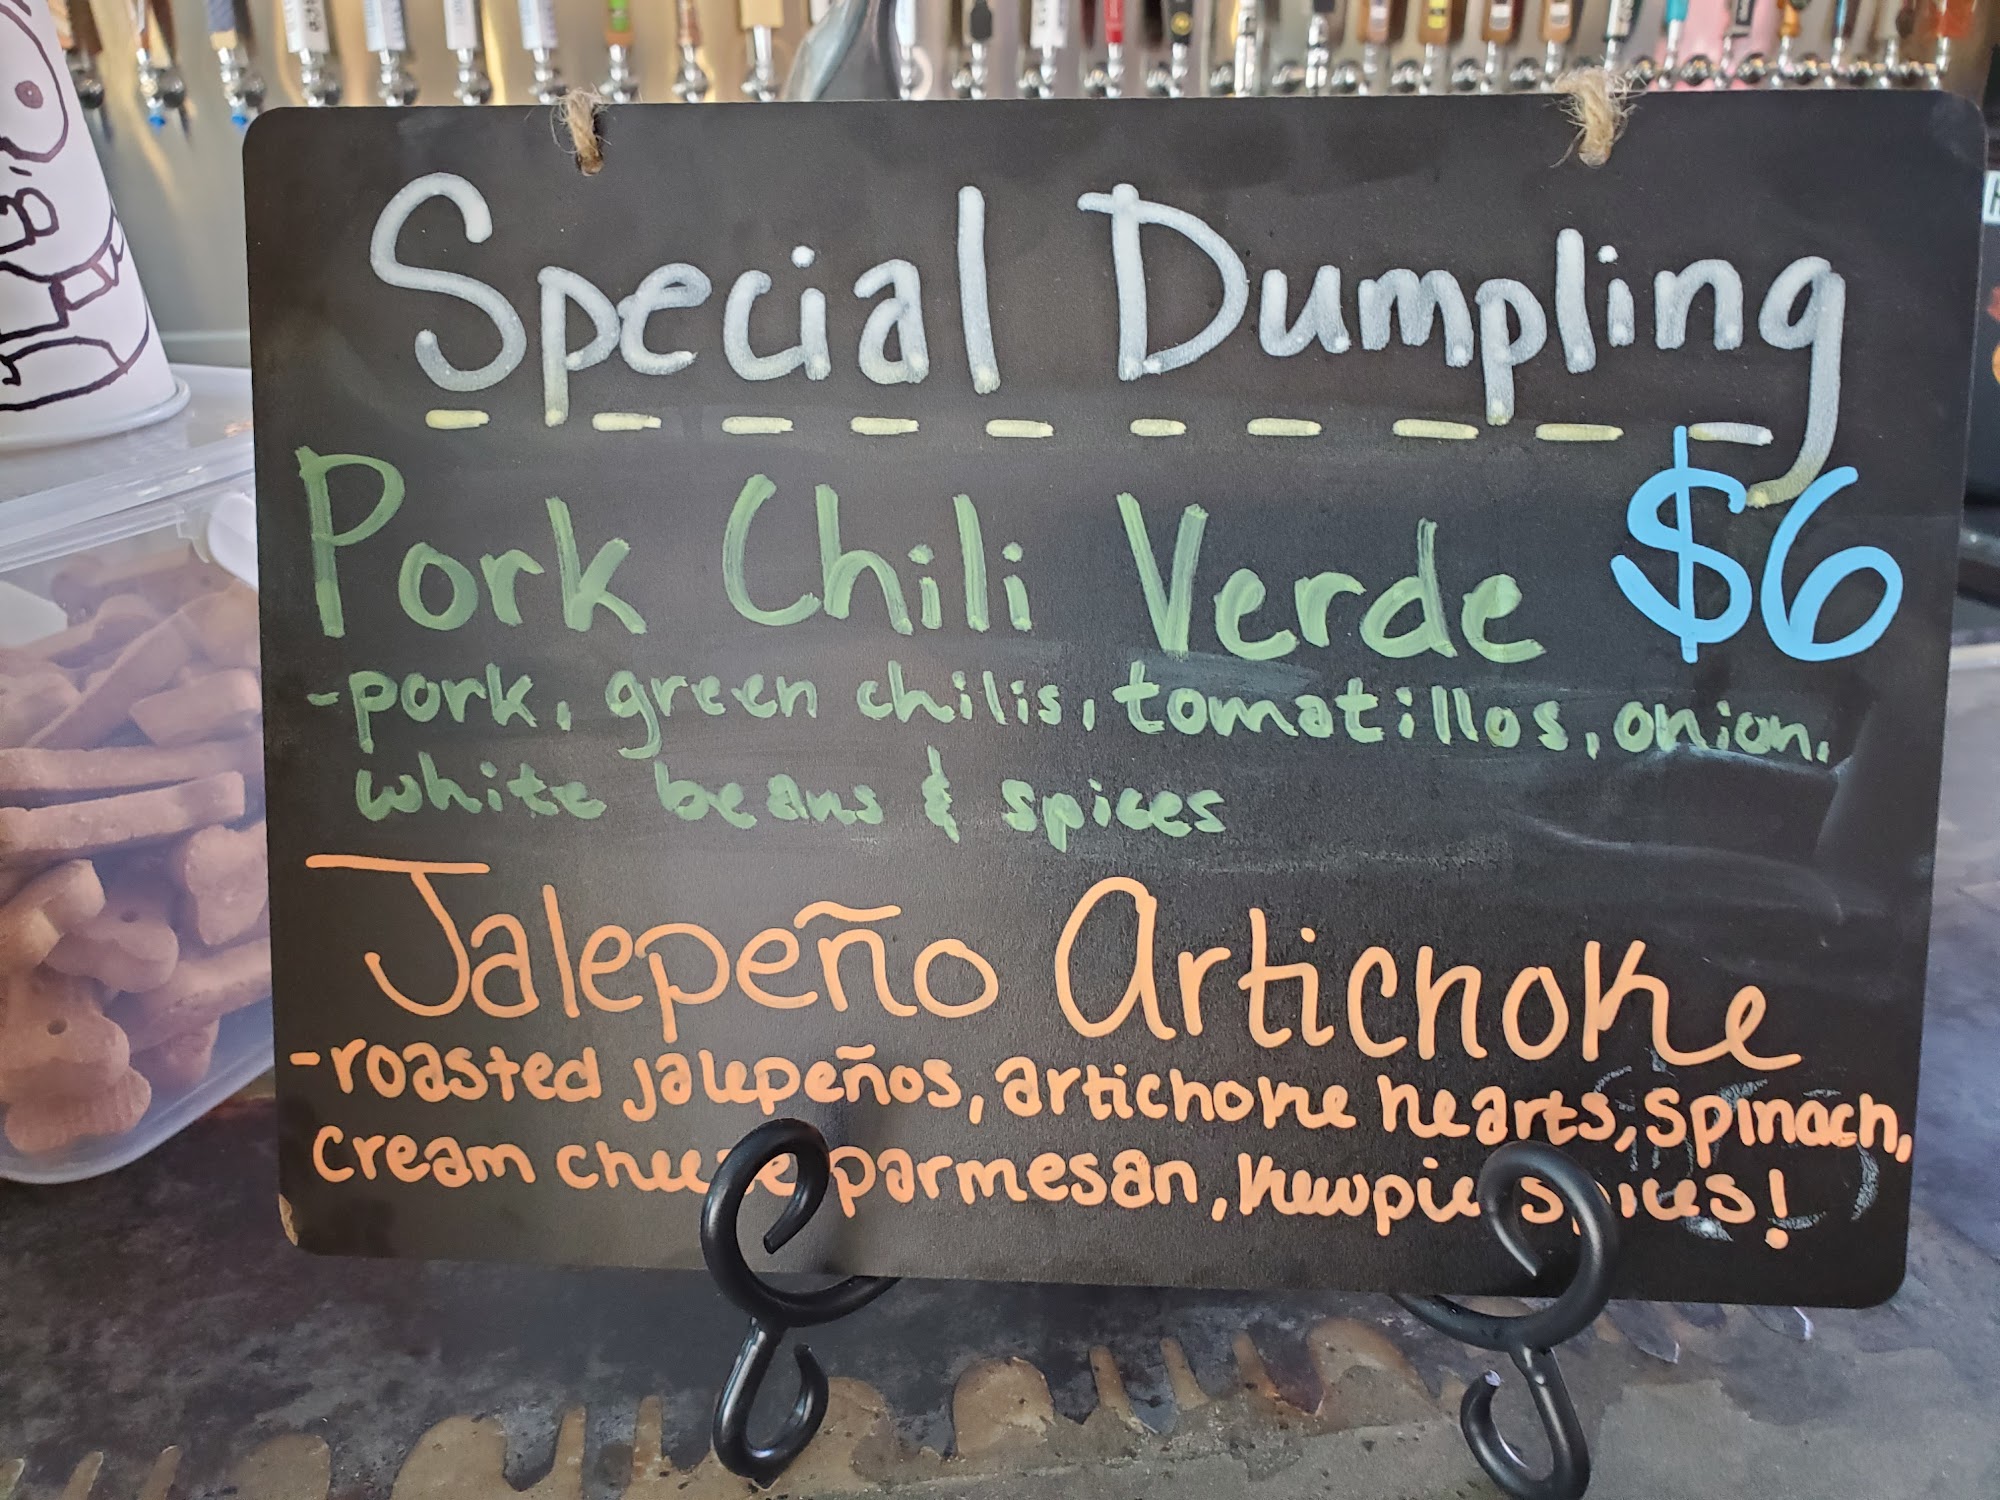 Special Dumpling
Pork Chili Verde $6
-pork, green chilis, tomatillos, onion,
white beans & spices
Jalepeño Artichoke
-roasted jalepeños, artichoke hearts, spinach,
cream cheese parmesan, kewpie spices!